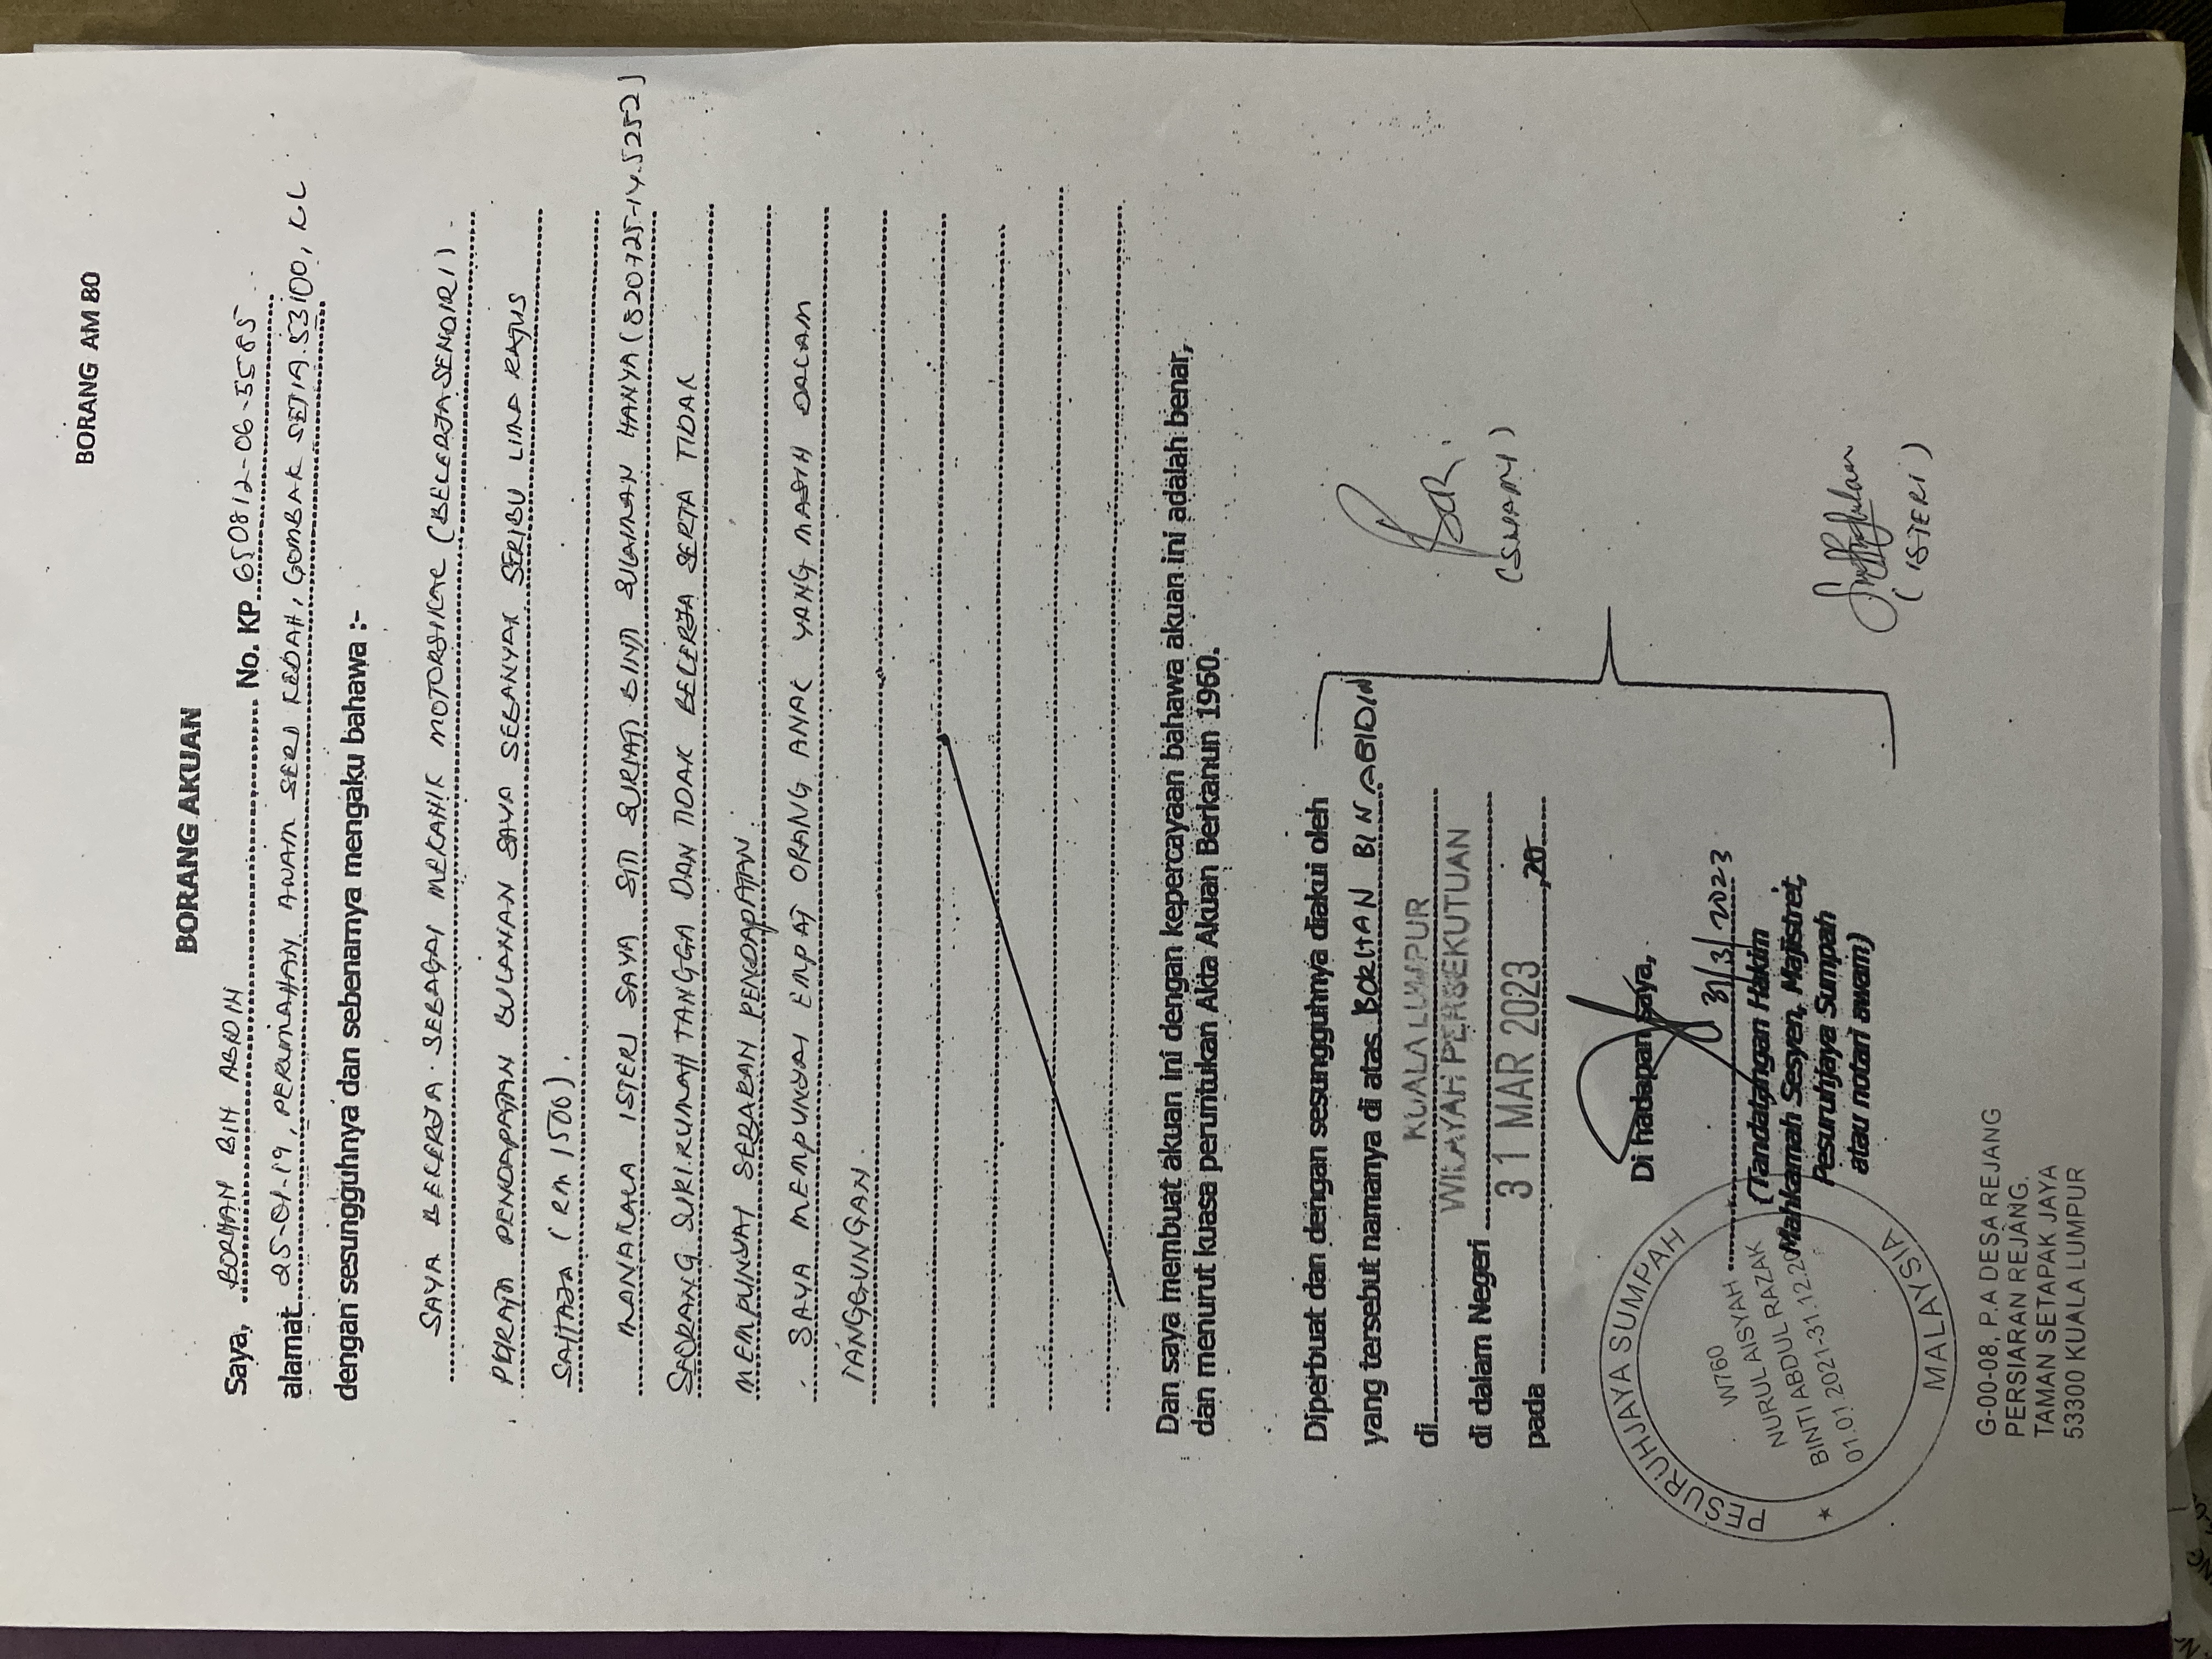 BORANG AM 80
BORANG AKUAN
Saya, BORHAN BIN ABIDIN No. KP 650812-06-5585
alamat 25-01-19, PERUMAHAN AWAM SERI KEDAH, GOMBAK SETIA. 53100, KL
dengan sesungguhnya dan sebenarnya mengaku bahawa :-
SAYA BEKERJA SEBAGAI MEKANIK MOTORSIKAL (BEKERJA SENDIRI).
PURATA PENDAPATAN BULANAN SAYA SEBANYAK SERIBU LIMA RATUS
SAHAJA (RM 1500).
MANAKALA ISTERI SAYA SITI SURIATI BINTI SULAIMAN HANYA (820725-14.5252)
SEORANG SURI RUMAH TANGGA DAN TIDAK BEKERJA SERTA TIDAK
MEMPUNYAI SEBARAN PENDAPATAN.
SAYA MEMPUNYAI EMPAT ORANG ANAK YANG MASIH DALAM
TANGGUNGAN.
Dan saya membuat akuan ini dengan kepercayaan bahawa akuan ini adalah benar,
dan menurut kuasa peruntukan Akta Akuan Berkanun 1960.
Diperbuat dan dengan sesungguhnya diakui oleh
yang tersebut namanya di atas BORHAN BIN ABIDIN
di KUALA LUMPUR
di dalam Negeri WILAYAH PERSEKUTUAN
pada 31 MAR 2023 ,20
(SUAMI)
Di hadapan saya,
31/3/2023
(Tandatangan Hakim
Mahkamah Sesyen, Majistret,
Pesuruhjaya Sumpah
atau notari awam)
(ISTERI)
PESURUHJAYA SUMPAH
W760
NURUL AISYAH
BINTI ABDUL RAZAK
01.01.2021-31.12.20
MALAYSIA
G-00-08, P.A DESA REJANG
PERSIARAN REJANG.
TAMAN SETAPAK JAYA
53300 KUALA LUMPUR